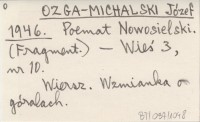 OZGA-MICHALSKI Józef
1946. Poemat Nowosielski.
(Fragment.) — Wieś 3,
nr 10.
Wiersz. Wzmianka o
góralach.